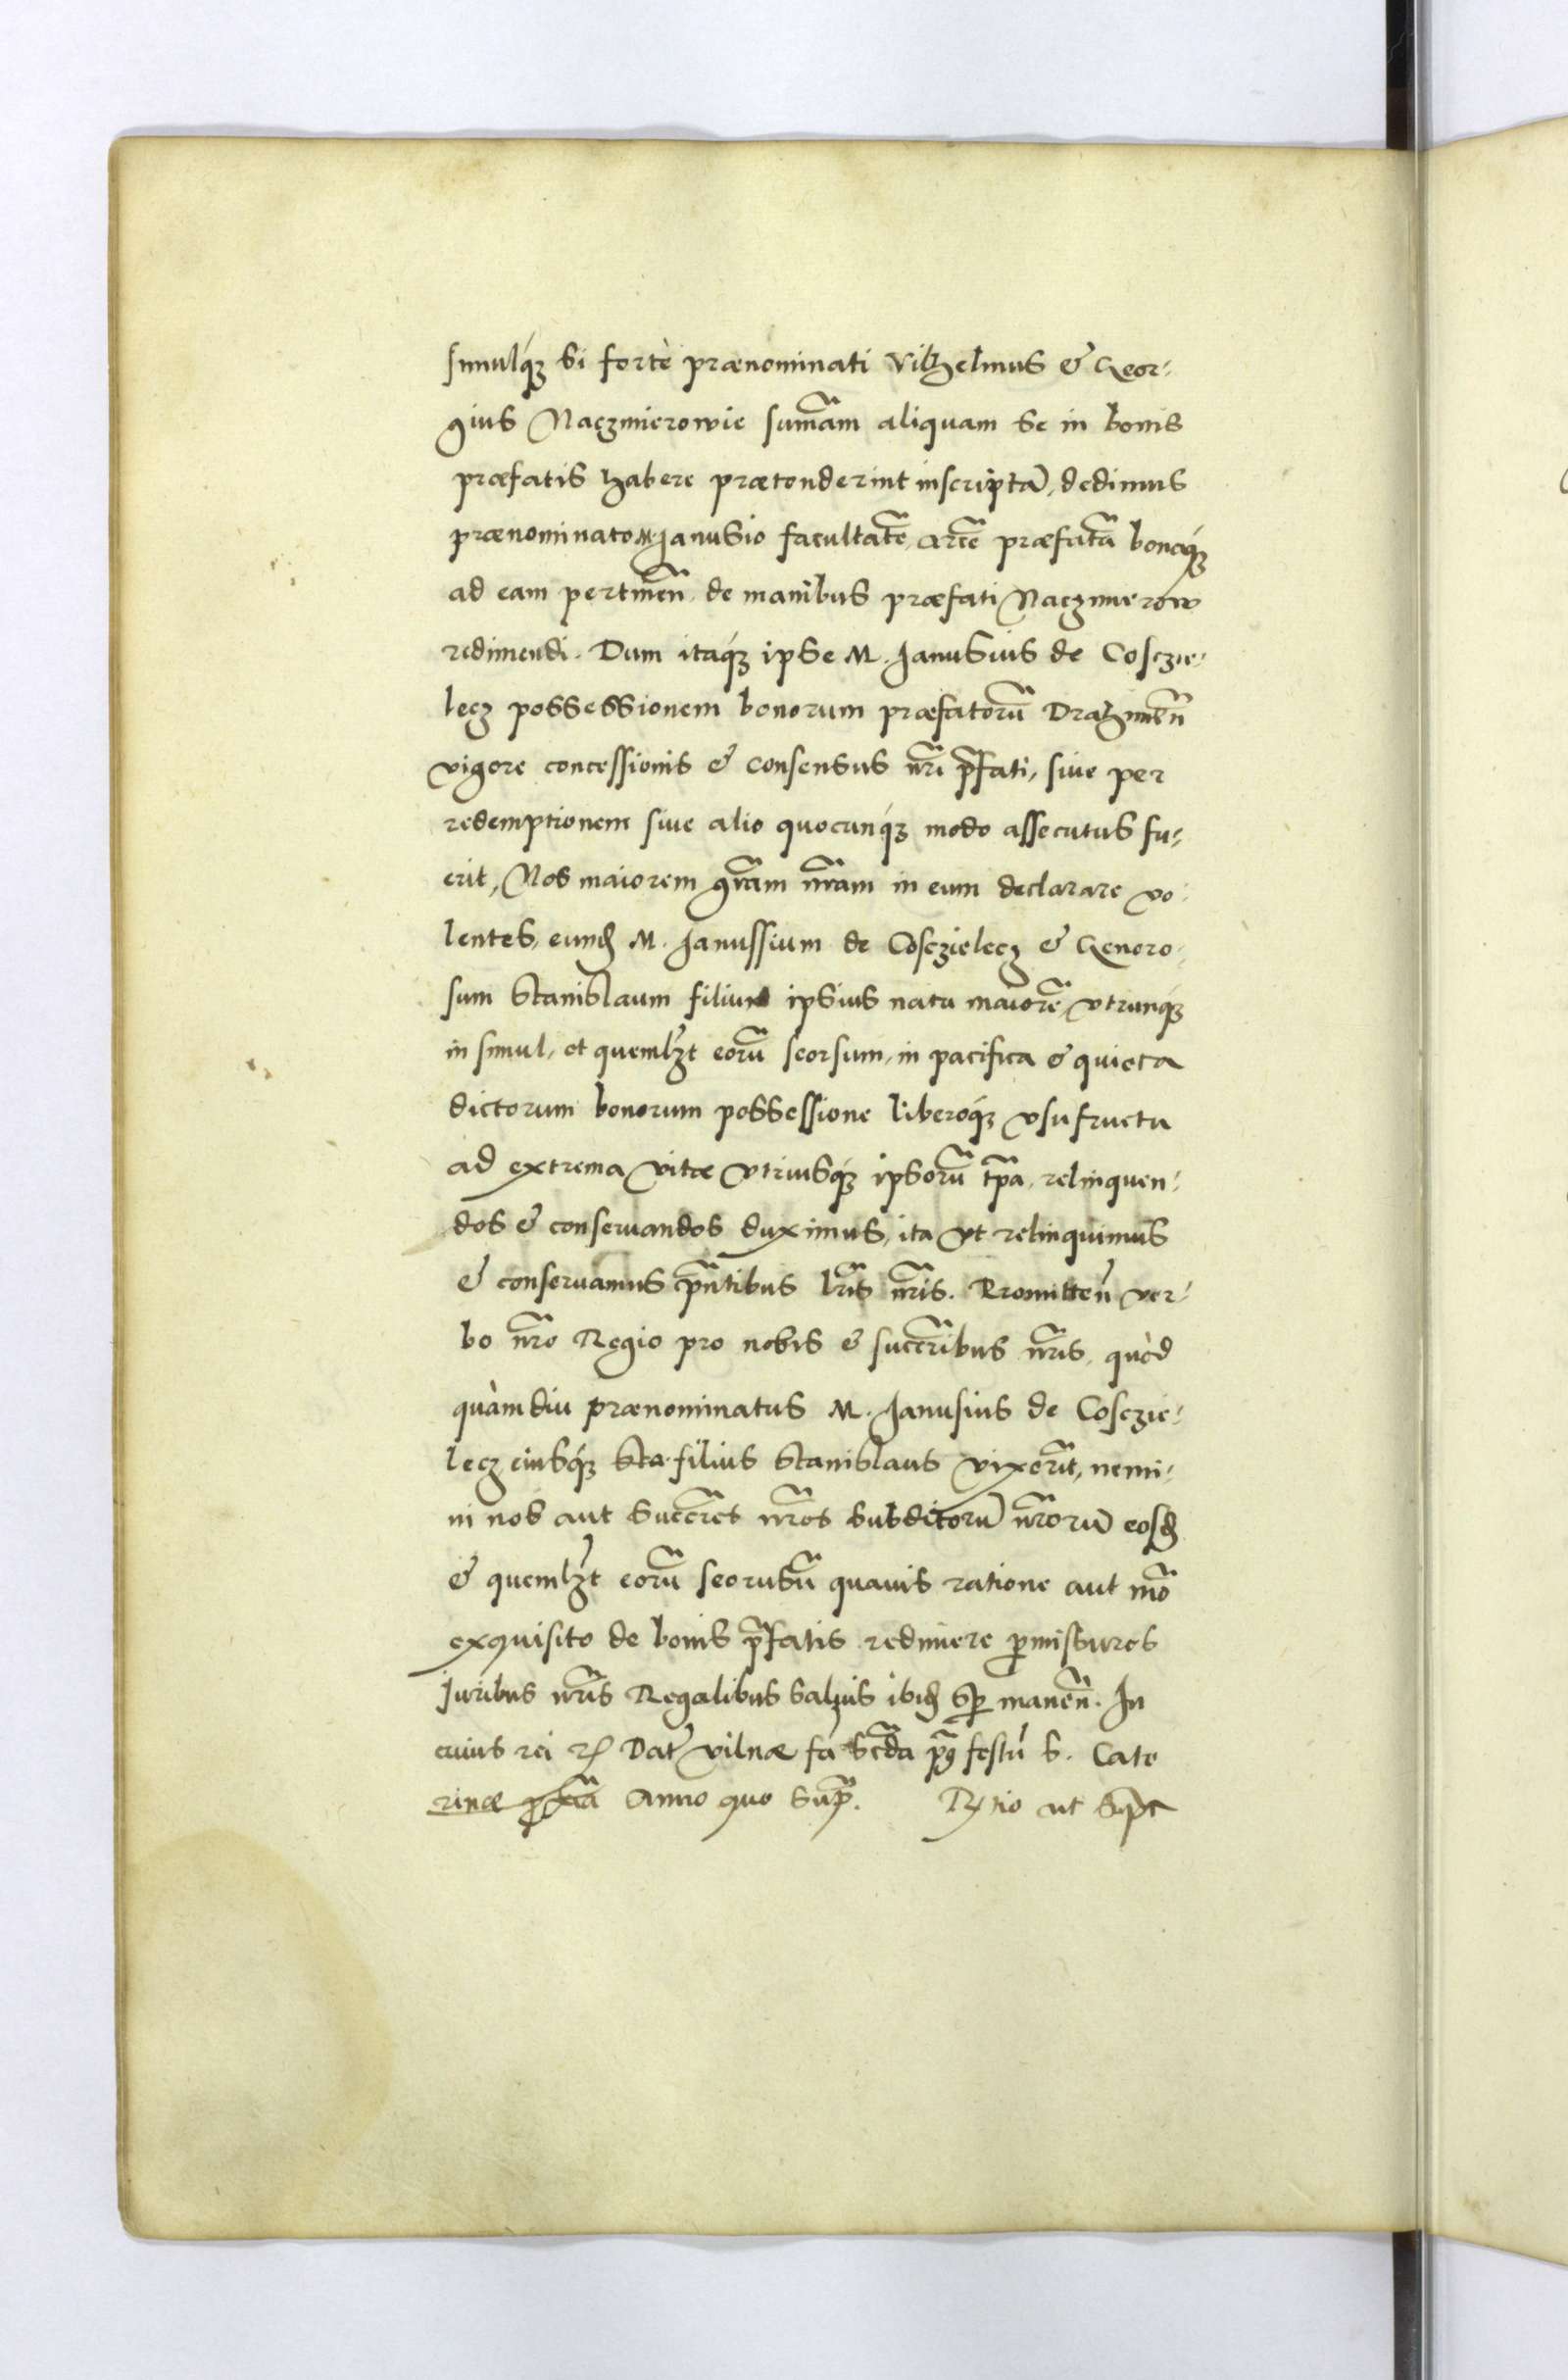 simulq́ꝫ si fortè prænominati Vilhelmus & Geor⸗
gius Naczmierowie sum̃am aliquam se in bonis
præfatis habere prætenderint inscriptā, dedimus
prænominato M. Janusio facultatẽ, arcẽ præfatã bonaq́ꝫ
ad eam pertineñ de manibus præfati Naczmierow
redimendi. Dum itaq́ꝫ ipse M. Janusius de Cosczie⸗
lecz possessionem bonorum præfatorũ Drahimeñ
vigore concessionis & consensus nr̃i p̃fati, siue per
redemptionem siue alio quocunq́ꝫ modo assecutus fu⸗
erit, Nos maiorem gr̃am nr̃am in eum declarare vo⸗
lentes, eund M. Janussium de Cosczielecz & Genero⸗
sum Stanislaum filium ipsius natu maiorẽ vtrunq́ꝫ
in simul, et quemlꝫt eorũ seorsum, in pacifica & quieta
dictorum bonorum possessione liberoq́ꝫ vsufructu
ad extrema vitæ vtriusq́ꝫ ipsorũ tp̃a, relinquen⸗
dos & conseruandos duximus, ita vt relinquimus
& conseruamus pñtibus lr̃is nr̃is. Promitteñ ver⸗
bo nr̃o Regio pro nobis & succr̃ibus nr̃is, quòd
quàmdiu prænominatus M. Janusius de Cosczie⸗
lecz eiusq́ꝫ filius Stanislaus vixerĩt, nemi⸗
ni nos aut succr̃es nr̃os subditorũ nr̃orũ eosd
& quemlꝫt eorũ seorusũ quauis ratione aut mõ
exquisito de bonis p̃fatis redimere ꝑmissuros
Juribus nr̃is Regalibus saluis ibid sꝑ maneñ. In
cuius rei ꝛ Dat vilnæ fa scd̃a p festũ S. Cate
rinæ Anno quo sup̃. Rtio ut Sup̃